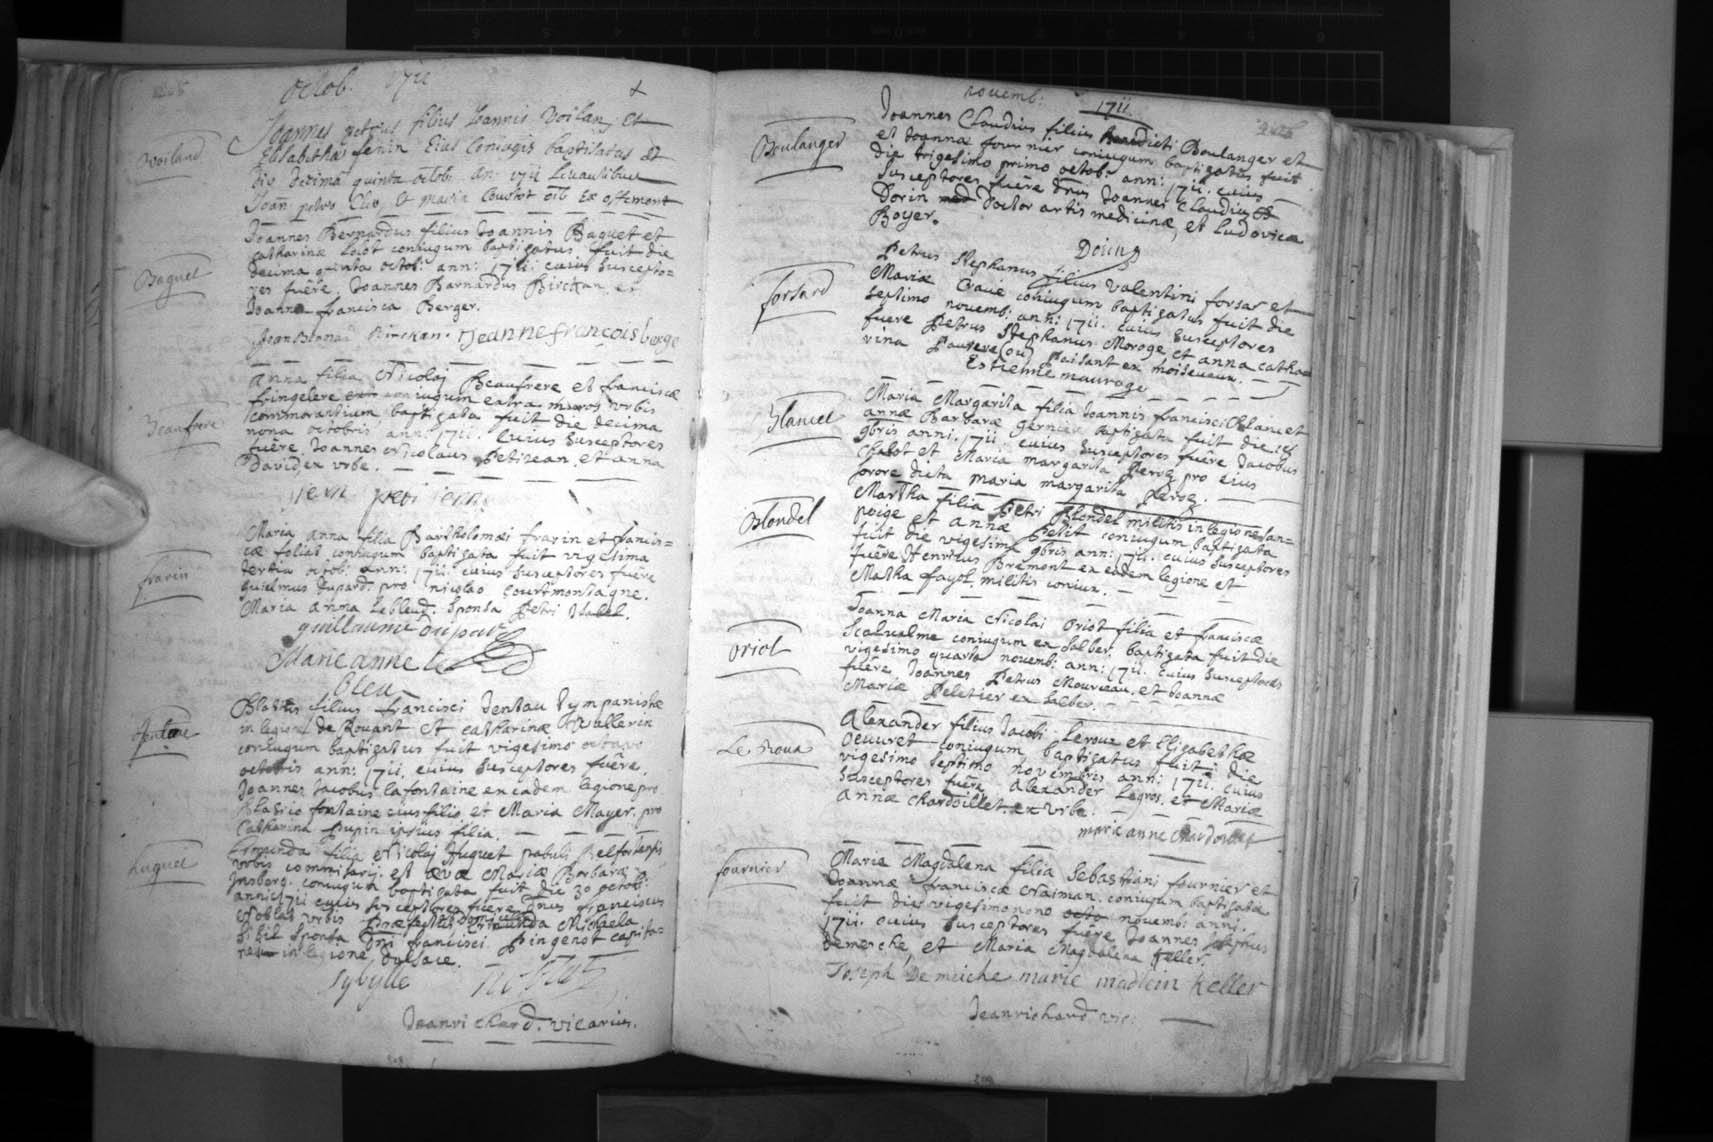 octob. 1711
Voiland
Joannes petrus filius Joannis Voilan, et
Elisabethæ fenin Eius Coniugis baptisatus est
die decima quinta octob: an: 1711 Levantibus
Joan: petro Clio, & maria Coustot ex offemont
Baguet
Joannes Bernardus filius Joannis Baguet et
catharinæ coniugum baptizatus fuit die
decima quinta octob: ann: 1711. cuius suscepto=
res fuêre, Joannes Barnardus Birckan, et
Joanna francisca Berger.
Jean Birckan. Jeanne francois berge
Beaufrere
Anna filia Nicolaj Beaufrere et franciscæ
fringelere coniugum extra muros urbis
commorantium baptizata fuit die decima
nona octobris ann: 1711. Cuius susceptores
fuêre, Joannes Nicolaus Petitean, et anna
David ex urbe.
jean peti jean
frarin
Maria anna filia Bartholomæi frarin et francis=
cæ folias coniugum baptizata fuit vigesima
tertia octob: ann: 1711. cuius susceptores fuêre
guielmus dupard: pro nicolao courtmontagne.
Maria anna lebleud: sponsa Petri
guillaume dupard
Marie anne le
bleu
Blasius filius francisci Jentau tympanistæ
in legione de Rouant et catharinæ Vullerin
coniugum baptizatus fuit vigesimo octavo
octobris ann: 1711. cuius susceptores fuêre.
Joannes Jacobus lafontaine ex eadem legione pro
Blasio fontaine eius filio et Maria Mayer, pro
Catharina Pupin ipsius filia.
huguet
filia Nicolaj Huguet pabuli Belfortensis
urbis commissarij, et Evæ Mariæ Barbaræ
Insberg. coniugum baptizata fuit die 30 octob:
anni 1711 cuius susceptores fuêre Dnus franciscus
Noblat urbis Præfectus, et domicella Michaela
sponsa Dni francisci Pingenot capita=
neu in legione, dalsace.
Sybylle Noblat
Jeanrichard. vicarius.
novemb: 1711.
Boulanger
Joannes Claudius filius Benedicti Boulanger et
et Joannæ fournier coniugum, baptizatus fuit
die trigesimo primo octob: ann: 1711. cuius
susceptores fuêre Dnus Joannes Claudius
Dorin med doctor artis medicinæ, et Ludovica
Boyer.
Doiin
forsard
Petrus Stephanus filius Valentini forsar et
Mariæ Craie coniugum baptizatus fuit die
septimo novemb: ann: 1711. cuius susceptores
fuere Petrus Stephanus Moroge et anna catha=
rina Pauvere (ou) Paisant ex moisevaux.
Estienne mauroge
Blancet
Maria Margarita filia Joannis francisci Blancet
annæ Barbaræ gernier baptizata fuit die
9bris anni. 1711. cuius susceptores fuêre Jacobus
Chabot et Maria margarita Peroz pro eius
sorore dicta maria margarita Peroz.
Blondel
Martha filia Petri Blondel militis in legione San=
poige et annæ Petit coniugum baptizata
fuit die vigesima 9bris ann: 1711. cuius susceptores
fuêre Henricus Bremont ex eadem legione et
Matha fayol, militis coniux.
oriol
Joanna Maria Nicolai oriot filia et franciscæ
Scaluelme coniugum ex salber. baptizata fuit die
vigesimo quarto novemb: ann: 1711. cuius susceptores
fuêre Joannes Petrus Mourceau, et Joannæ
Mariæ Peletier ex salber.
Le Roux
Alexander filius Jacobi Leroux et Elizabethæ
Oeuuret coniugum, baptizatus fuit: die
vigesimo septimo novembris ann: 1711. cuius
susceptores fuêre, Alexander Legros, et Mariæ
annæ chardoillet ex urbe.
marie anne Chardoillet
fournier
Maria Magdalena filia Sebastiani fournier et
Joannæ franciscæ Naiman. coniugum baptizata
fuit die vigesimo nono octo novemb: anni.
1711. cuius susceptores fuêre Joannes Josephus
demerche, et Maria Magdalena Keller.
Joseph De meiche marie madlein keller
Jeanrichard vic: